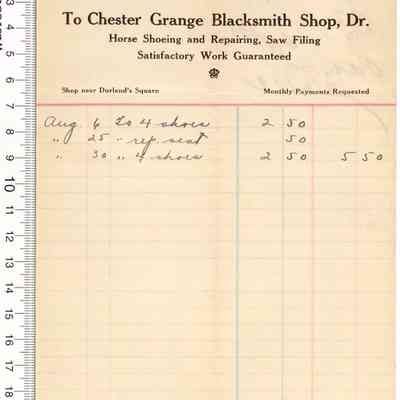 To Chester Grange Blacksmith Shop, Dr.
Horse Shoeing and Repairing, Saw Filing
Satisfactory Work Guaranteed
Shop near Dorland's Square Monthly Payments Requested
Aug 6 To 4 shoes 2 50
" 25 " rep. seat 50
" 30 " 4 shoes 2 50 5 50
3
4
5
6
7
8
9
10
11
12
13
14
15
16
17
18